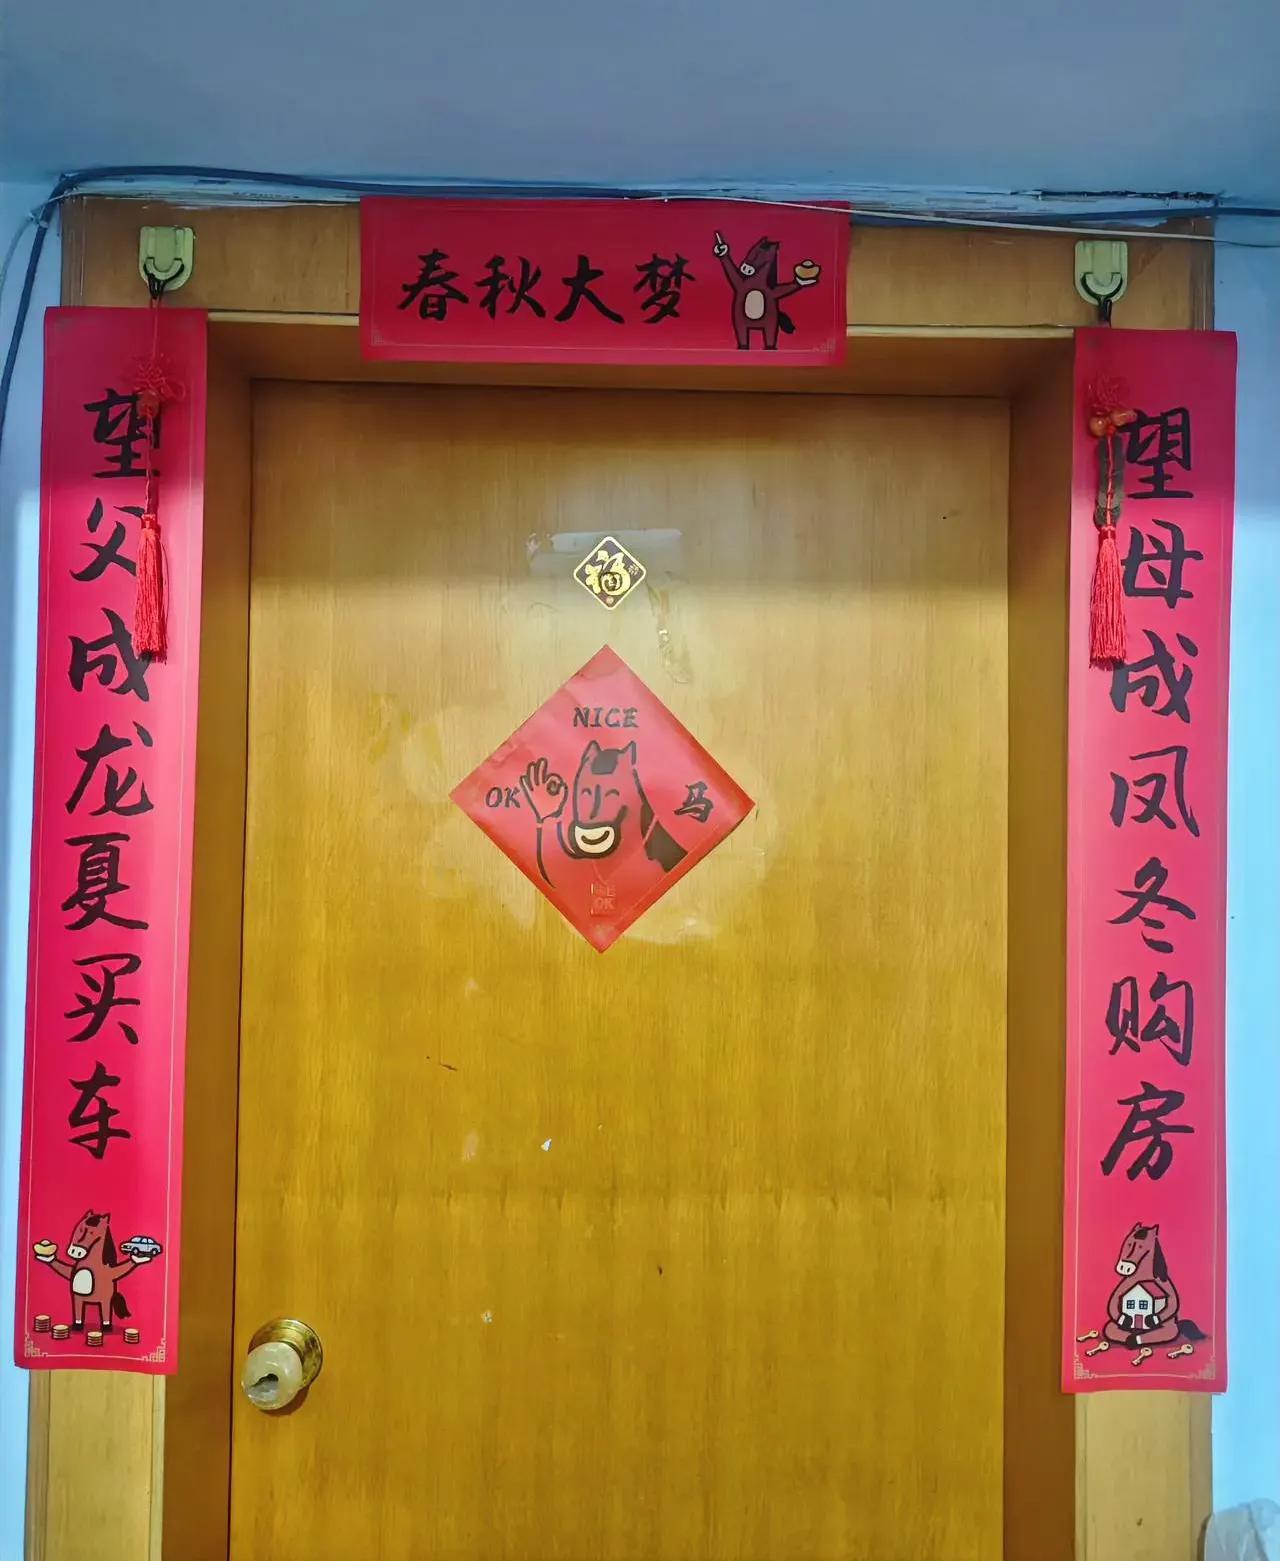 春秋大梦
望父成龙夏买车
望母成凤冬购房
福
NICE
OK
马
OK